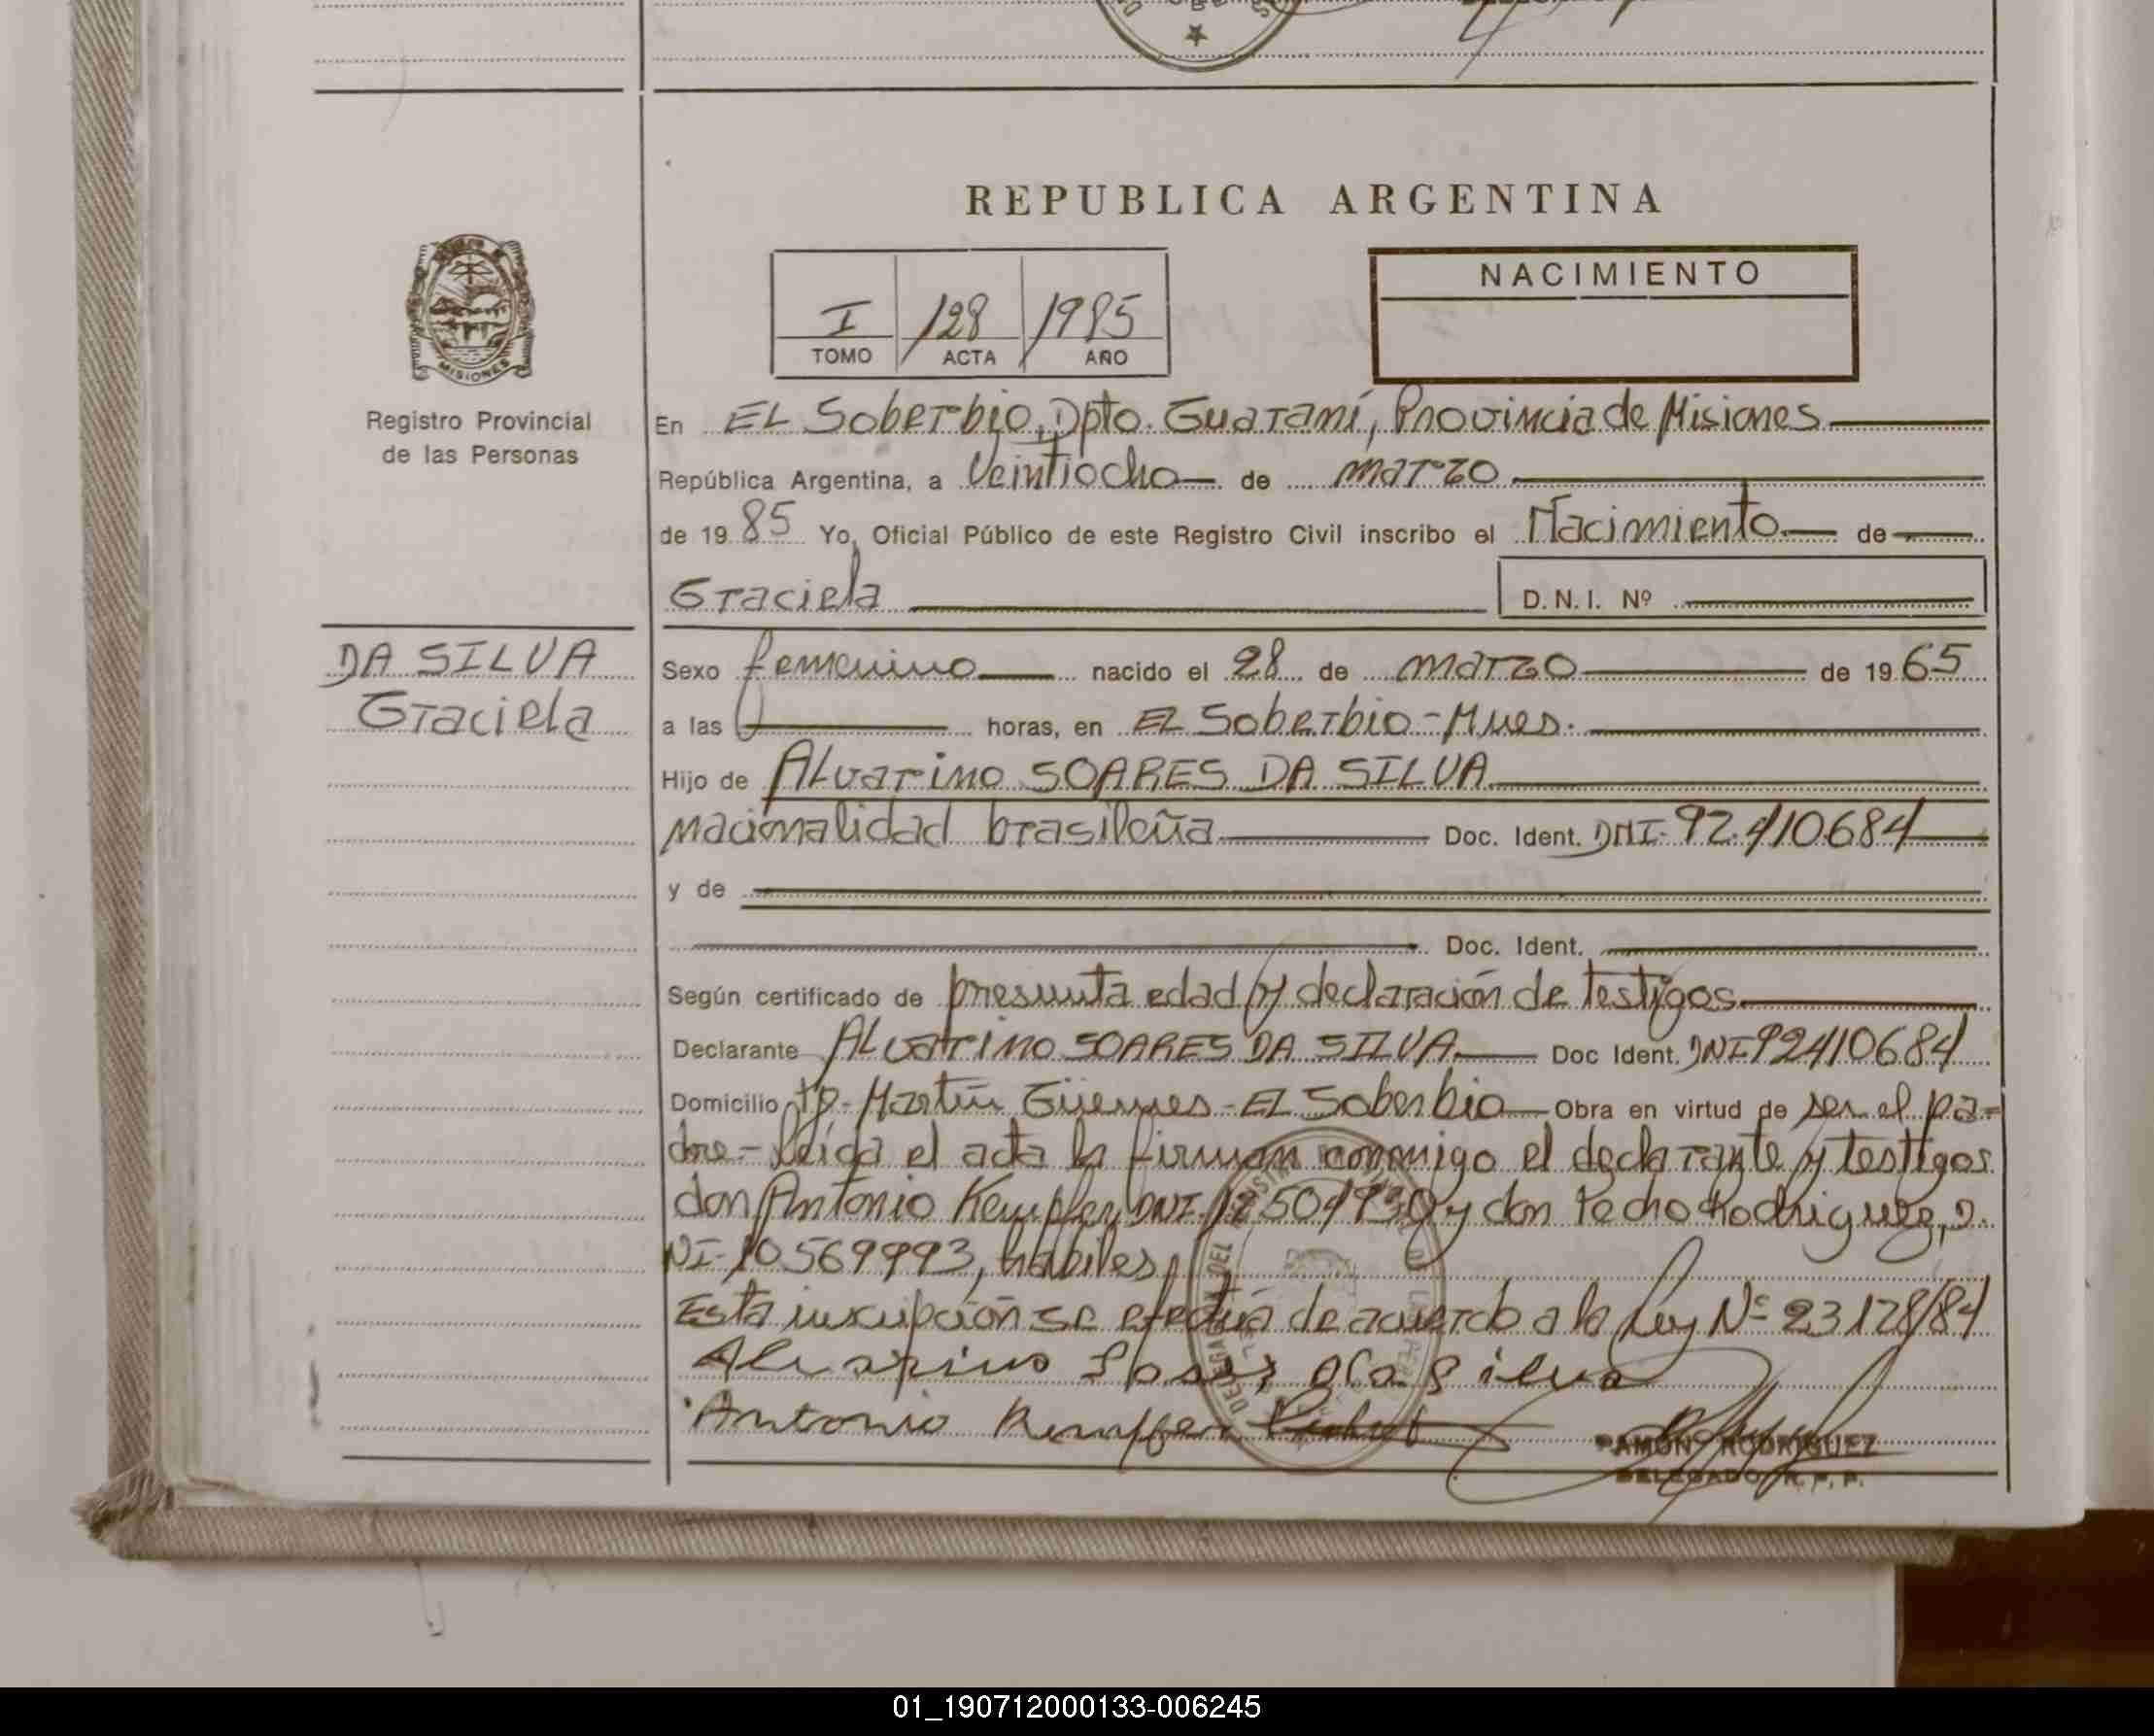 REPUBLICA ARGENTINA
NACIMIENTO
I 128 1985
TOMO ACTA AÑO
MISIONES
Registro Provincial
de las Personas
En EL Soberbio, Dpto. Guaraní, Provincia de Misiones
República Argentina, a Veintiocho de marzo
de 19 85 Yo, Oficial Público de este Registro Civil inscribo el Nacimiento de
Graciela
D.N.I. Nº
DA SILVA
Graciela
Sexo femenino nacido el 28 de marzo de 19 65
a las horas, en EL Soberbio - Mnes.
Hijo de ALvarino SOARES DA SILVA
nacionalidad brasileña Doc. Ident. DNI- 92.410684
y de
Doc. Ident.
Según certificado de presunta edad y declaración de testigos
Declarante ALvarino SOARES DA SILVA Doc Ident. DNI 92410684
Domicilio Martín Güemes - EL Soberbio Obra en virtud de ser el pa=
dre - leída el acta la firman conmigo el declarante y testigos
don Antonio Kempfer DNI y don Pedro Rodriguez, D.
NI- 10569993, hábiles
Esta inscripción se efectúa de acuerdo a la Ley Nº 23128/84
Alvarino da Silva
Antonio Kempfer
RAMON RODRIGUEZ
DELEGADO R. P. P.
01_190712000133-006245